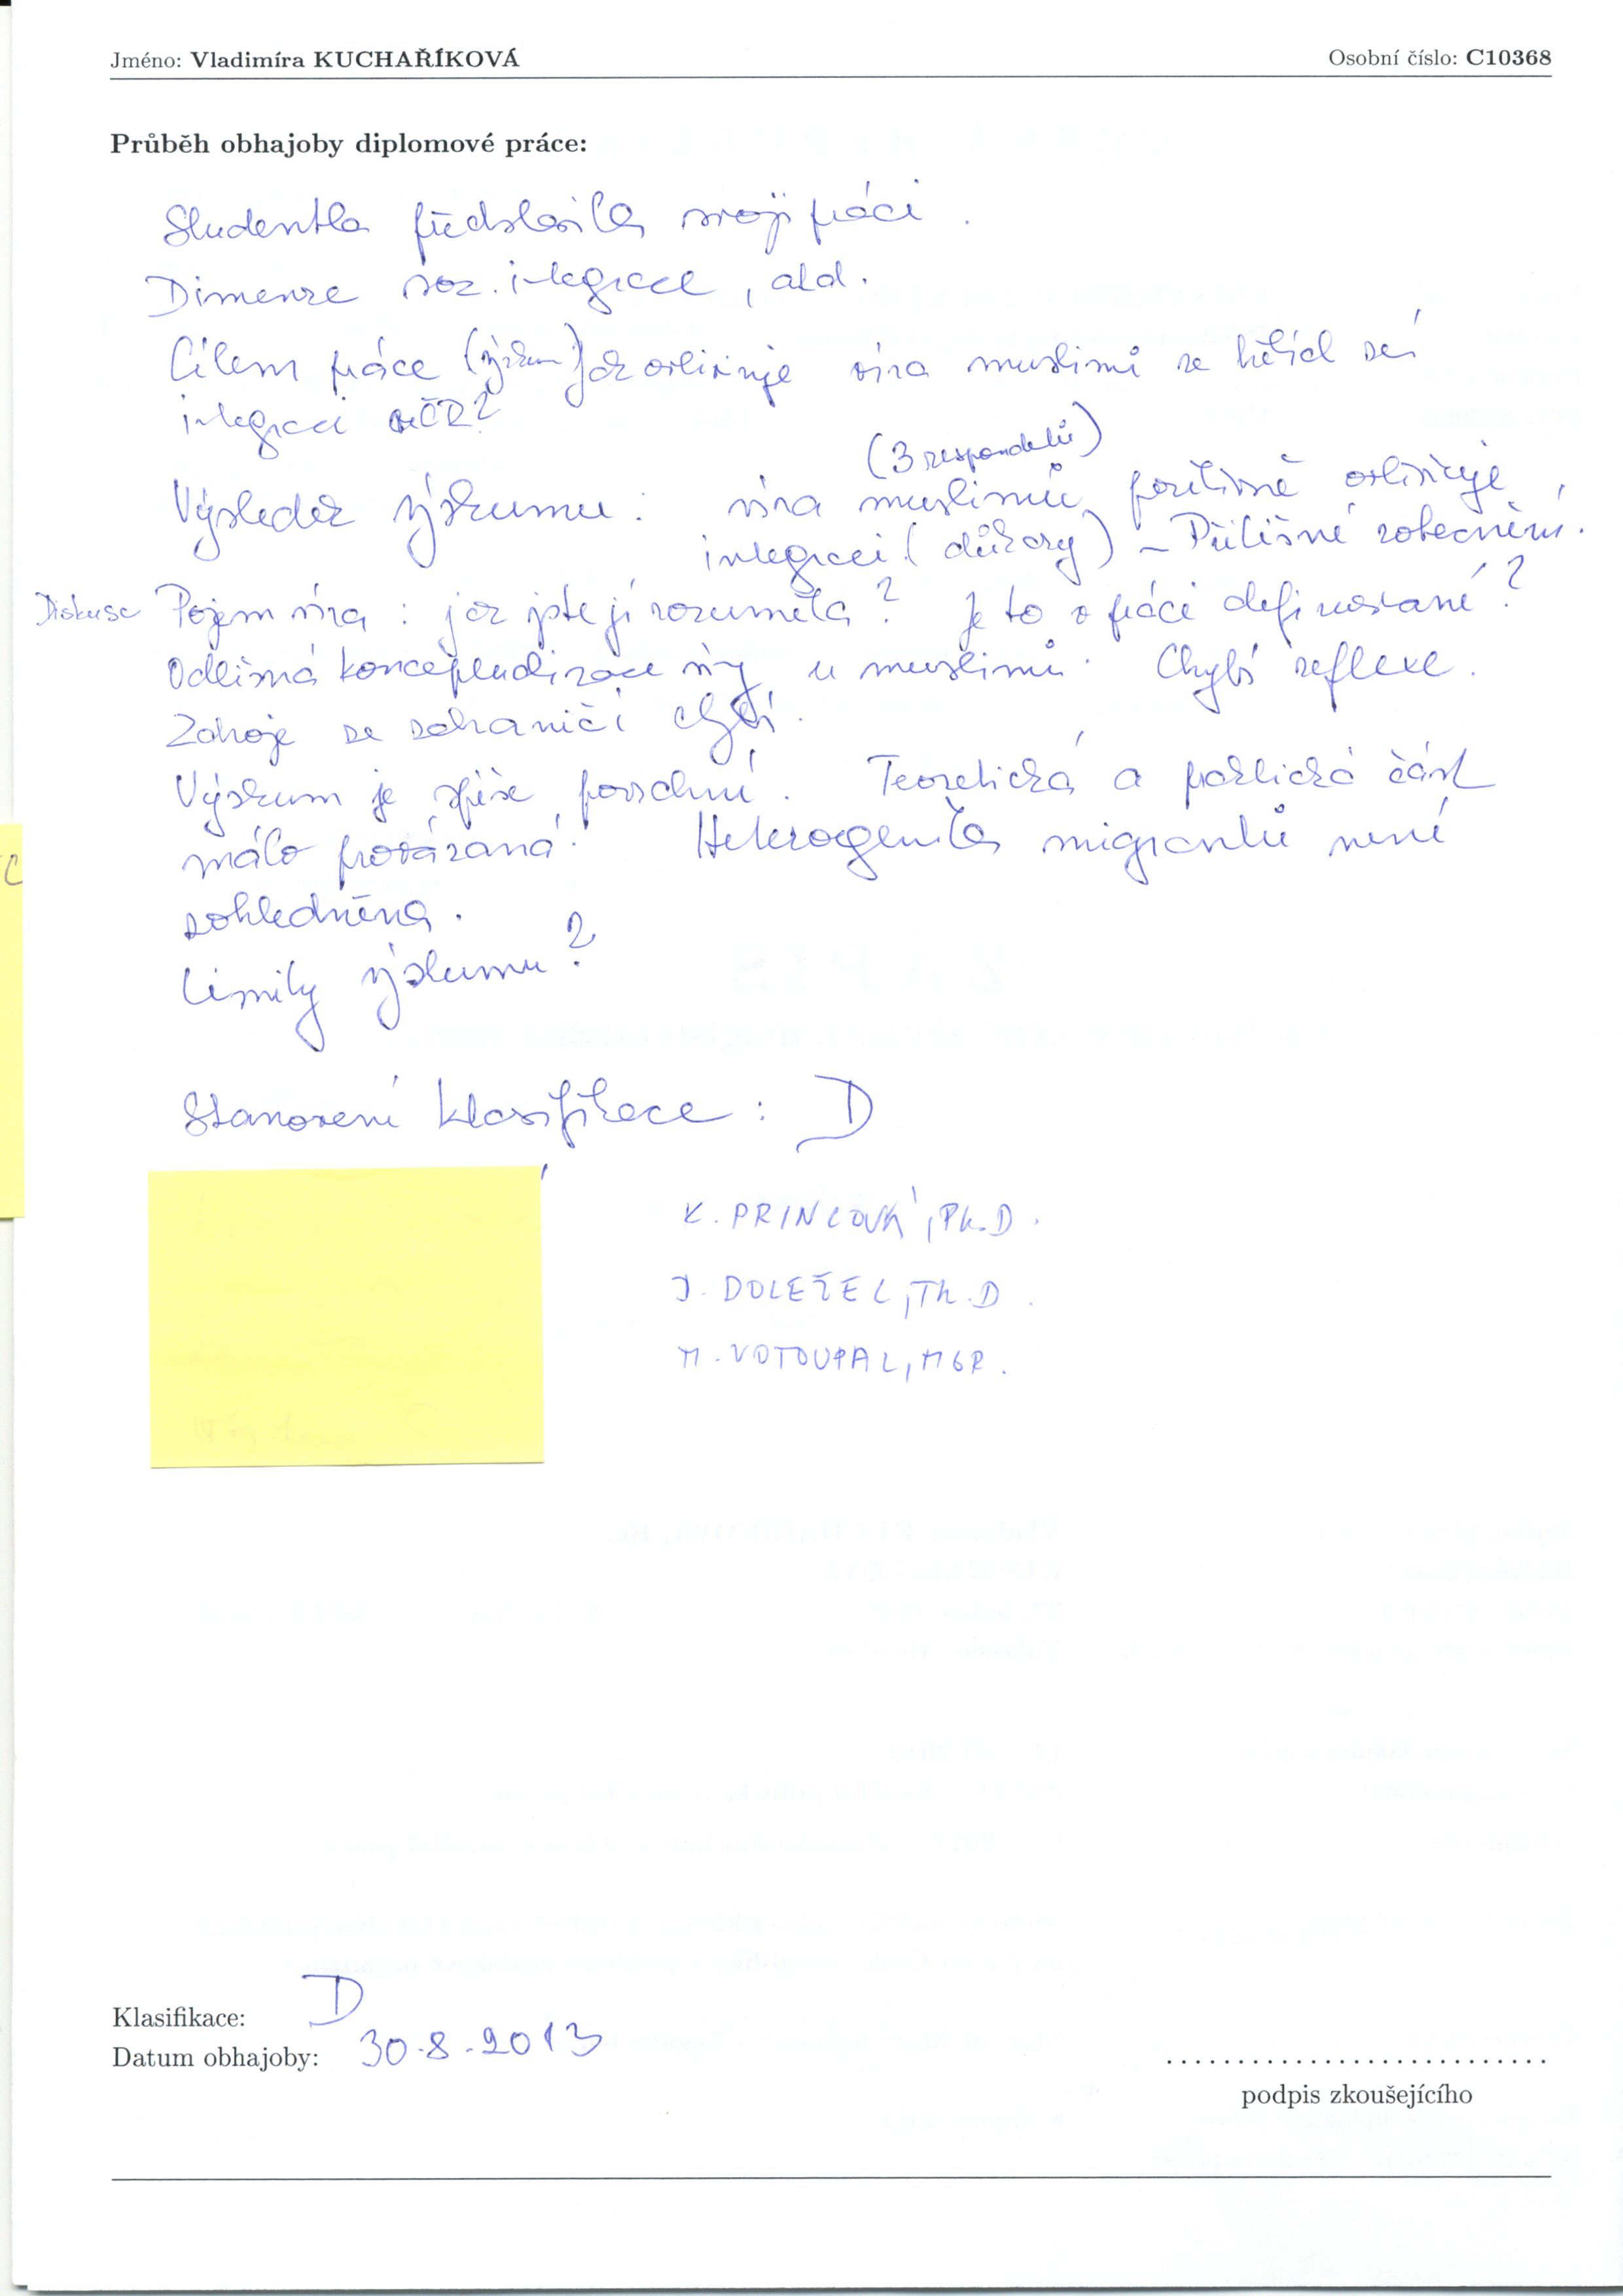 Jméno: Vladimíra KUCHAŘÍKOVÁ Osobní číslo: C10368
Průběh obhajoby diplomové práce:
Studentka představila svoji práci.
Dimenze soc. integrace, atd.
Cílem práce (výzkum) jak ovlivňuje víra muslimů ve třetích zemí
integraci v ČR?
(3 respondentů)
Výsledek výzkumu: víra muslimů pozitivně ovlivňuje,
integraci (důkazy) – Přílišné zobecnění.
Diskuse Pojem víra: jak jste jí rozuměla? Je to v práci definované?
Odlišná konceptualizace víry u muslimů. Chybí reflexe.
Zdroje ze zahraničí chybí.
Výzkum je spíše povrchní. Teoretická a praktická část
málo provázaná. Heterogenita migrantů není
zohledněna.
Limity výzkumu?
Stanovení klasifikace: D
K. PRINCOVÁ, Ph.D.
J. DOLEŽEL, Th.D.
M. VOTOUPAL, MGR.
Klasifikace: D
Datum obhajoby: 30.8.2013
podpis zkoušejícího